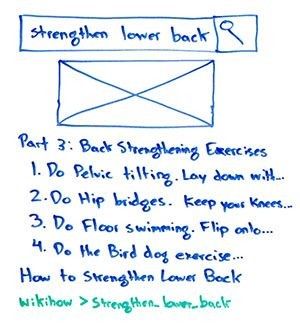 strengthen lower back
Part 3: Back Strengthening Exercises
1. Do Pelvic tilting. Lay down with...
2. Do Hip bridges. Keep your Knees...
3. Do Floor swimming. Flip onto...
4. Do the Bird dog exercise...
How to Strengthen Lower Back
wikihow > Strengthen_lower_back